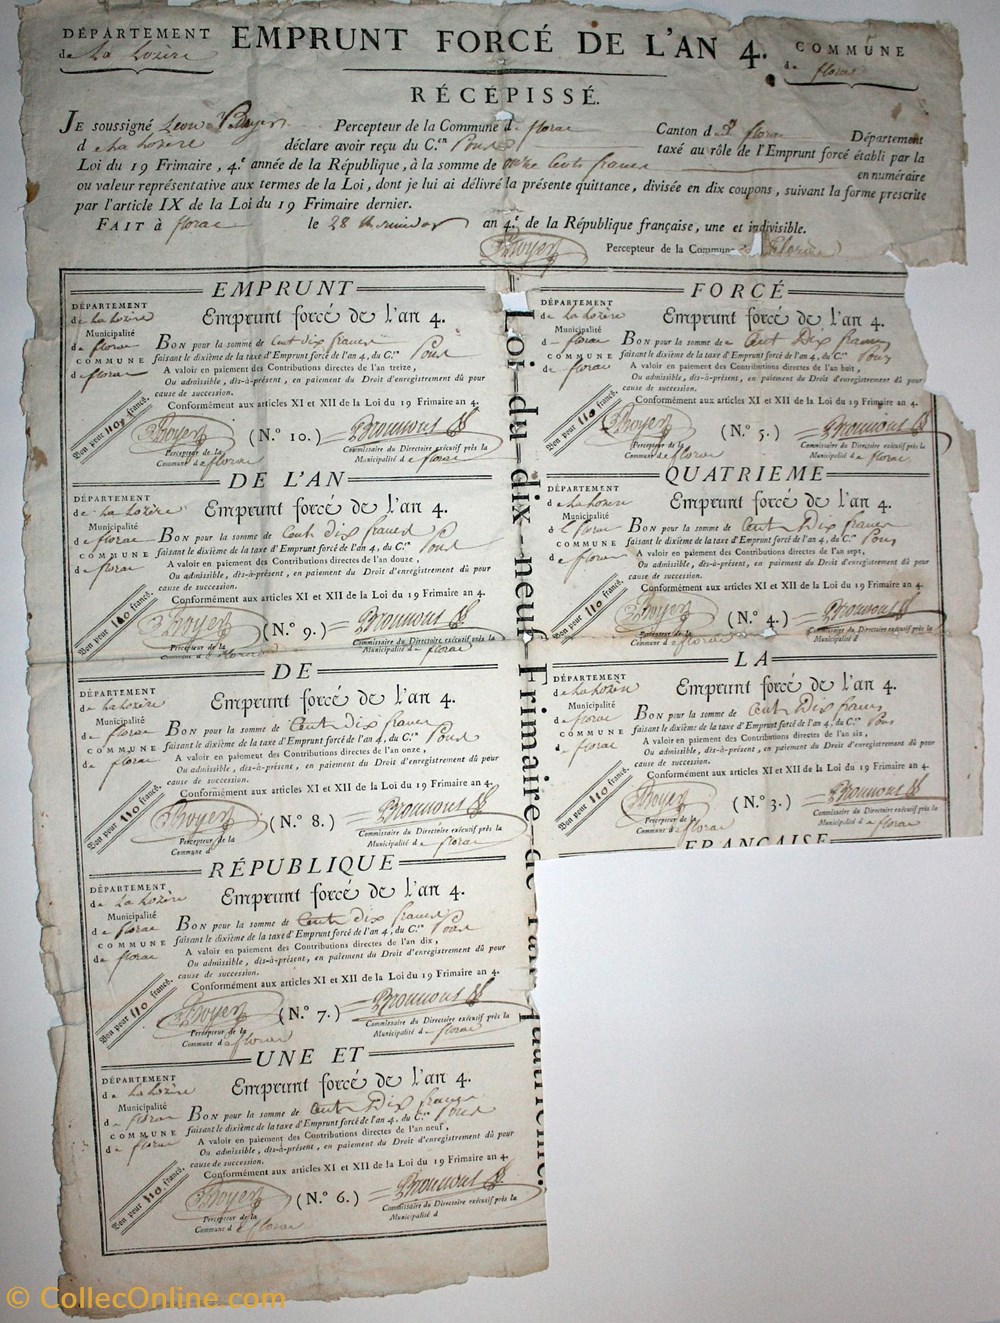 DÉPARTEMENT
de La Lozère
EMPRUNT FORCÉ DE L'AN 4.
COMMUNE
d florac
RÉCÉPISSÉ.
JE soussigné Percepteur de la Commune d florac Canton d florac Département
d La Lozère déclare avoir reçu du C.en Pons taxé au rôle de l'Emprunt forcé établi par la
Loi du 19 Frimaire, 4.e année de la République, à la somme de onze Cents francs en numéraire
ou valeur représentative aux termes de la Loi, dont je lui ai délivré la présente quittance, divisée en dix coupons, suivant la forme prescrite
par l'article IX de la Loi du 19 Frimaire dernier.
FAIT à florac le 28 an 4.e de la République française, une et indivisible.
Boyer Percepteur de la Commune
EMPRUNT
DÉPARTEMENT
de La Lozère
Municipalité
de florac
COMMUNE
de florac
Emprunt forcé de l'an 4.
BON pour la somme de Cent dix francs
faisant le dixième de la taxe d'Emprunt forcé de l'an 4, du C.en Pons
A valoir en paiement des Contributions directes de l'an treize,
Ou admissible, dès-à-présent, en paiement du Droit d'enregistrement dû pour
cause de succession.
Conformément aux articles XI et XII de la Loi du 19 Frimaire an 4.
Bon pour 110 francs.
Boyer
(N.o 10.)
Percepteur de la
Commune de florac
Commissaire du Directoire exécutif près la
Municipalité de florac
DE L'AN
DÉPARTEMENT
de La Lozère
Municipalité
de florac
COMMUNE
de florac
Emprunt forcé de l'an 4.
BON pour la somme de Cent Dix francs
faisant le dixième de la taxe d'Emprunt forcé de l'an 4, du C.en Pons
A valoir en paiement des Contributions directes de l'an douze,
Ou admissible, dès-à-présent, en paiement du Droit d'enregistrement dû pour
cause de succession.
Conformément aux articles XI et XII de la Loi du 19 Frimaire an 4.
Bon pour 110 francs.
Boyer
(N.o 9.)
Percepteur de la
Commune de florac
Commissaire du Directoire exécutif près la
Municipalité de florac
DE
DÉPARTEMENT
de La Lozère
Municipalité
de florac
COMMUNE
de florac
Emprunt forcé de l'an 4.
BON pour la somme de Cent Dix francs
faisant le dixième de la taxe d'Emprunt forcé de l'an 4, du C.en Pons
A valoir en paiement des Contributions directes de l'an onze,
Ou admissible, dès-à-présent, en paiement du Droit d'enregistrement dû pour
cause de succession.
Conformément aux articles XI et XII de la Loi du 19 Frimaire an 4.
Bon pour 110 francs.
Boyer
(N.o 8.)
Percepteur de la
Commune d
Commissaire du Directoire exécutif près la
Municipalité de florac
RÉPUBLIQUE
DÉPARTEMENT
de La Lozère
Municipalité
de florac
COMMUNE
de florac
Emprunt forcé de l'an 4.
BON pour la somme de Cent Dix francs
faisant le dixième de la taxe d'Emprunt forcé de l'an 4, du C.en Pons
A valoir en paiement des Contributions directes de l'an dix,
Ou admissible, dès-à-présent, en paiement du Droit d'enregistrement dû pour
cause de succession.
Conformément aux articles XI et XII de la Loi du 19 Frimaire an 4.
Bon pour 110 francs.
Boyer
(N.o 7.)
Percepteur de la
Commune de florac
Commissaire du Directoire exécutif près la
Municipalité de florac
UNE ET
DÉPARTEMENT
de La Lozère
Municipalité
de florac
COMMUNE
de florac
Emprunt forcé de l'an 4.
BON pour la somme de Cent Dix francs
faisant le dixième de la taxe d'Emprunt forcé de l'an 4, du C.en Pons
A valoir en paiement des Contributions directes de l'an neuf,
Ou admissible, dès-à-présent, en paiement du Droit d'enregistrement dû pour
cause de succession.
Conformément aux articles XI et XII de la Loi du 19 Frimaire an 4.
Bon pour 110 francs.
Boyer
(N.o 6.)
Percepteur de la
Commune de florac
Commissaire du Directoire exécutif près la
Municipalité d
Loi du dix-neuf Frimaire de l'an quatrième.
FORCÉ
DÉPARTEMENT
de La Lozère
Municipalité
de florac
COMMUNE
de florac
Emprunt forcé de l'an 4.
BON pour la somme de Cent Dix francs
faisant le dixième de la taxe d'Emprunt forcé de l'an 4, du C.en Pons
A valoir en paiement des Contributions directes de l'an huit,
Ou admissible, dès-à-présent, en paiement du Droit d'enregistrement dû pour
cause de succession.
Conformément aux articles XI et XII de la Loi du 19 Frimaire an 4.
Bon pour 110 francs.
Boyer
(N.o 5.)
Percepteur de la
Commune de florac
Commissaire du Directoire exécutif près la
Municipalité de florac
QUATRIEME
DÉPARTEMENT
de La Lozère
Municipalité
d florac
COMMUNE
de florac
Emprunt forcé de l'an 4.
BON pour la somme de Cent Dix francs
faisant le dixième de la taxe d'Emprunt forcé de l'an 4, du C.en Pons
A valoir en paiement des Contributions directes de l'an sept,
Ou admissible, dès-à-présent, en paiement du Droit d'enregistrement dû pour
cause de succession.
Conformément aux articles XI et XII de la Loi du 19 Frimaire an 4.
Bon pour 110 francs.
Boyer
(N.o 4.)
Percepteur de la
Commune de florac
Commissaire du Directoire exécutif près la
Municipalité d
LA
DÉPARTEMENT
de La Lozère
Municipalité
de florac
COMMUNE
de florac
Emprunt forcé de l'an 4.
BON pour la somme de Cent Dix francs
faisant le dixième de la taxe d'Emprunt forcé de l'an 4, du C.en Pons
A valoir en paiement des Contributions directes de l'an six,
Ou admissible, dès-à-présent, en paiement du Droit d'enregistrement dû pour
cause de succession.
Conformément aux articles XI et XII de la Loi du 19 Frimaire an 4.
Bon pour 110 francs.
Boyer
(N.o 3.)
Percepteur de la
Commune de florac
Commissaire du Directoire exécutif près la
Municipalité de florac
FRANÇAISE
© CollecOnline.com